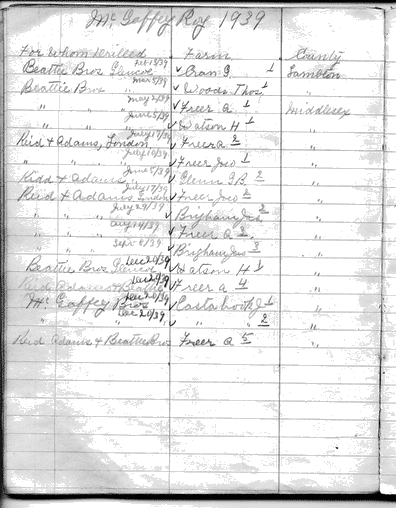 McGaffey Roy 1939
For Whom Drilled Farm County
Beattie Bros Glencoe ✓ Oran G. 1 Lambton
Beattie Bros " ✓ Woods Thos 1 "
" " " May 2/39 ✓ Freer A 1 Middlesex
" " " June 5/39 ✓ Watson H 1 "
Reid & Adams, London July 17/39 ✓ Freer A 2 "
" " " July 10/39 ✓ Freer Geo 1 "
Kidd & Adams " June 5/39 ✓ Glenn G.B. 2 "
Reid & Adams London July 17/39 ✓ Freer Geo 2 "
" " " July 29/39 ✓ Brigham Jas "
" " " Aug 14/39 ✓ Freer A 3 "
" " " Sept 6/39 ✓ Brigham Jas 3 "
Beattie Bros Glencoe Dec 20/39 ✓ Watson H 1 "
Reid Adams & Beattie Dec 20/39 ✓ Freer A 4 "
McGaffey Bros Dec 20/39 ✓ J 1 "
" " " Dec 20/39 ✓ " " 2 "
Reid Adams & Beattie Bros Freer A 5 "